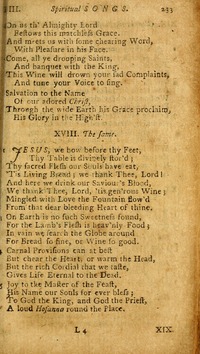 III. Spiritual SONGS. 233
On us th' Almighty Lord
Bestows this matchless Grace,
And meets us with some chearing Word,
With Pleasure in his Face.
Come, all ye drooping Saints,
And banquet with the King,
This Wine will drown your sad Complaints,
And tune your Voice to sing.
Salvation to the Name
Of our adored Christ,
Through the wide Earth his Grace proclaim,
His Glory in the High'st.
XVIII. The same.
1 JESUS, we bow before thy Feet,
Thy Table is divinely stor'd;
Thy sacred Flesh our Souls have eat,
'Tis Living Bread; we thank Thee, Lord!
And here we drink our Saviour's Blood,
We thank Thee, Lord, 'tis gen'rous Wine;
Mingled with Love the Fountain flow'd
From that dear bleeding Heart of thine.
On Earth is no such Sweetness found,
For the Lamb's Flesh is heav'nly Food;
In vain we search the Globe around
For Bread so fine, or Wine so good.
Carnal Provisions can at best
But chear the Heart, or warm the Head,
But the rich Cordial that we taste,
Gives Life Eternal to the Dead.
Joy to the Master of the Feast,
His Name our Souls for ever bless;
To God the King, and God the Priest,
A loud Hosanna round the Place.
L 4 XIX.